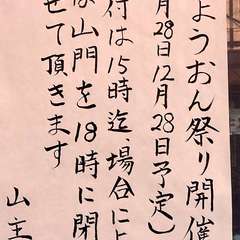 ようおん祭り開催
月28日12月28日予定)
付は15時迄場合によ
山門を18時に閉
せて頂きます
山主